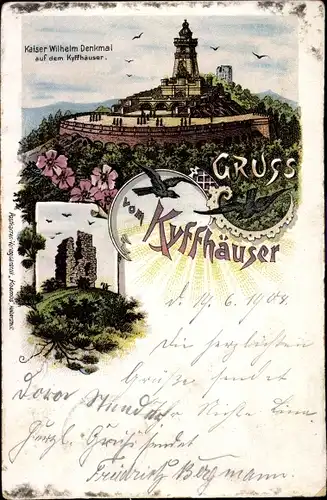 Kaiser Wilhelm Denkmal
auf dem Kyffhäuser.
GRUSS
vom
Kyffhäuser
d. 19. 6. 1908.
Die herzlichsten
Grüße sendet
Nichte
Herzl. Grüße sendet
Friedrich Bergmann.